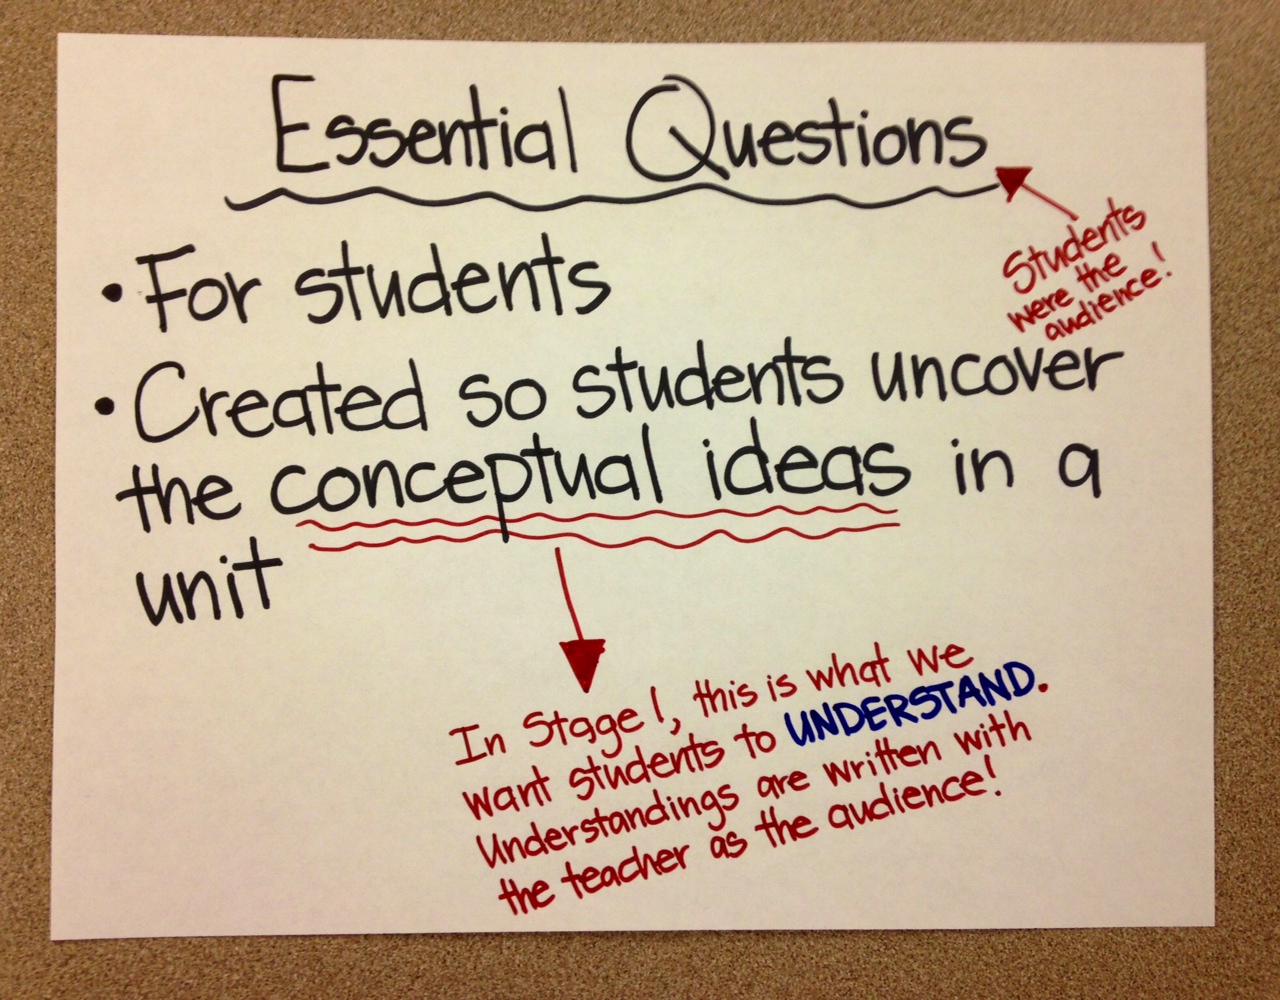 Essential Questions
Students
were the
audience!
• For students
• Created so students uncover
the conceptual ideas in a
unit
In Stage 1, this is what we
want students to UNDERSTAND.
Understandings are written with
the teacher as the audience!